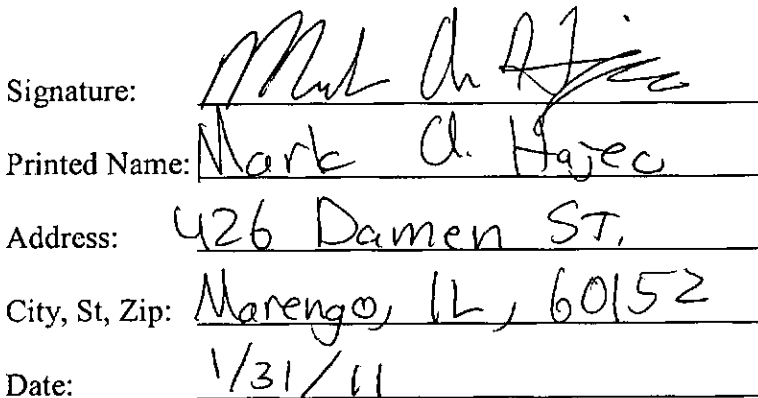 Signature: Mark A. Hajec
Printed Name: Mark A. Hajec
Address: 426 Damen ST.
City, St, Zip: Marengo, IL, 60152
Date: 1/31/11